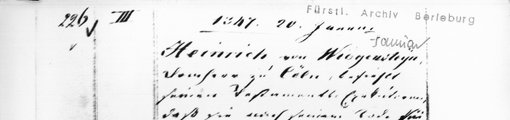 Fürstl. Archiv Berleburg
226 III 1347. 20. Januar
Januar
Heinrich von
Domherr zu Cöln, befiehlt
seinen Testaments-Exekutoren,
daß sie nach seinem Tode